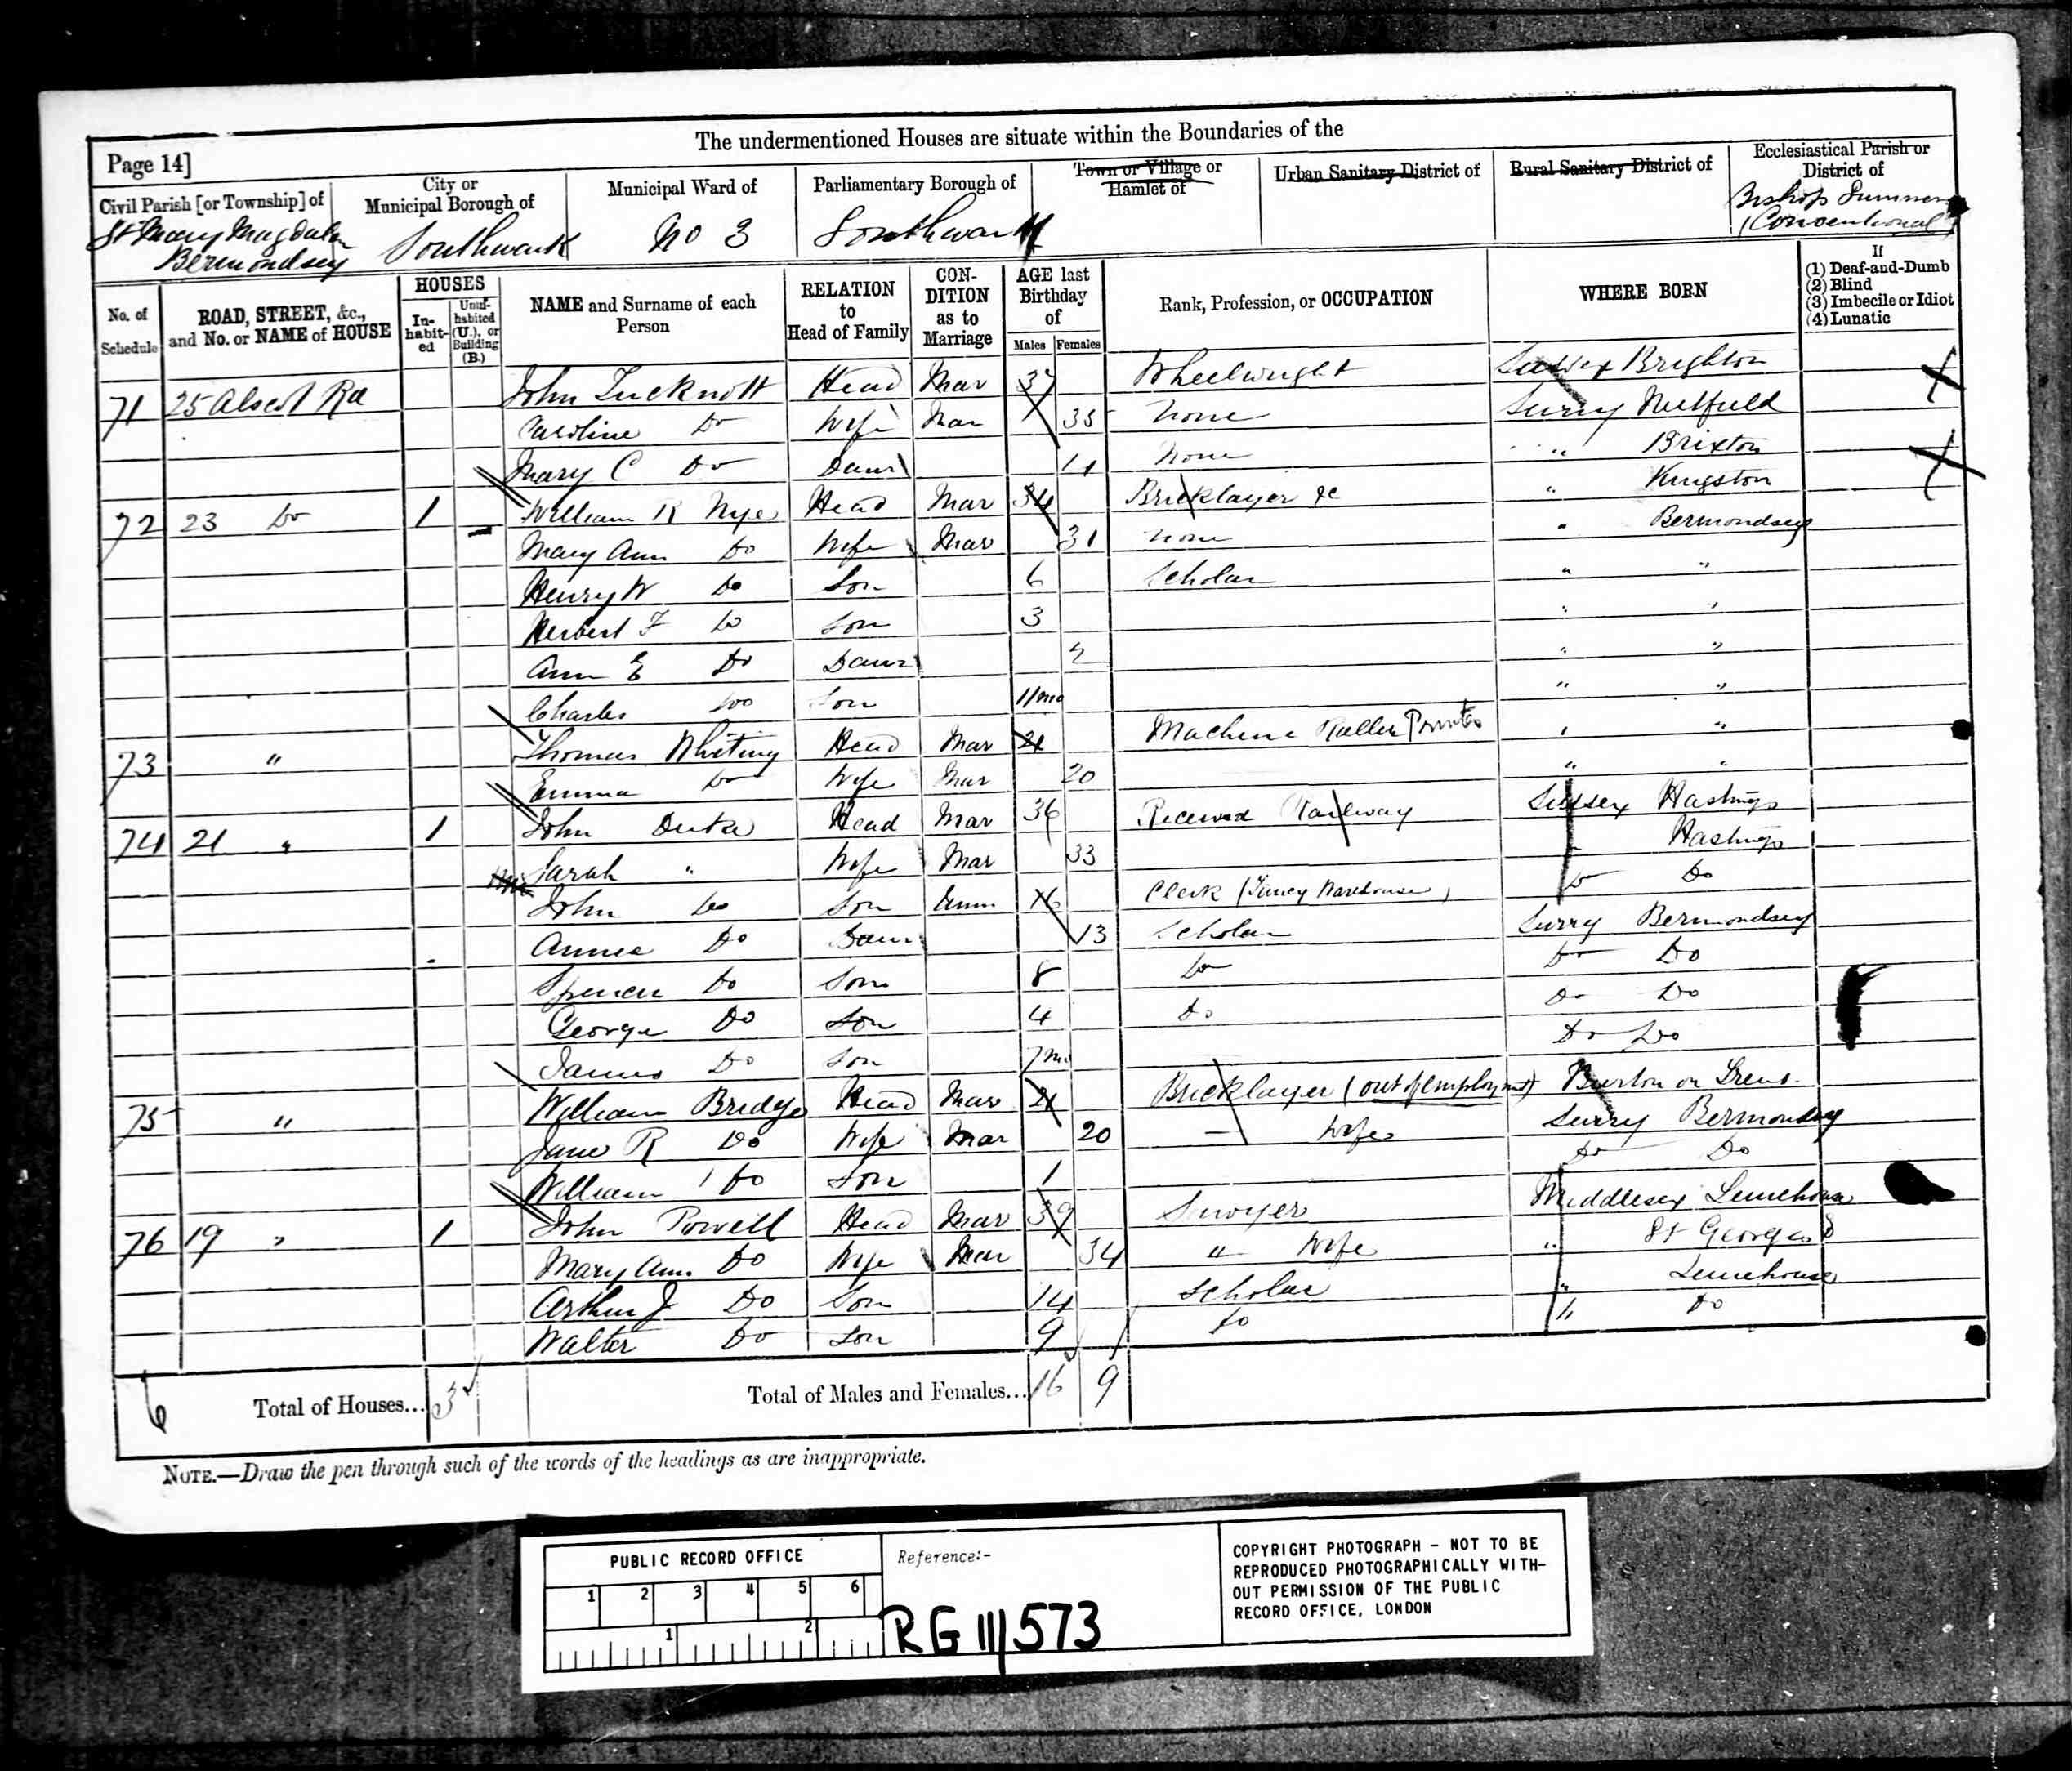 The undermentioned Houses are situate within the Boundaries of the
Page 14]
Civil Parish [or Township] of
St Mary Magdalen
Bermondsey
City or
Municipal Borough of
Southwark
Municipal Ward of
No 3
Parliamentary Borough of
Southwark
Town or Village or
Hamlet of
Urban Sanitary District of
Rural Sanitary District of
Ecclesiastical Parish or
District of
Bishop Sumner
(Conventional)
No. of
Schedule
ROAD, STREET, &c.,
and No. or NAME of HOUSE
HOUSES
In-
habit-
ed
Unin-
habited
(U.), or
Building
(B.)
NAME and Surname of each
Person
RELATION
to
Head of Family
CON-
DITION
as to
Marriage
AGE last
Birthday
of
Males Females
Rank, Profession, or OCCUPATION
WHERE BORN
If
(1) Deaf-and-Dumb
(2) Blind
(3) Imbecile or Idiot
(4) Lunatic
71 25 Alscot Rd John Tucknott Head Mar 37 Wheelwright Sussex Brighton
Caroline Do Wife Mar 35 None Surry Nutfield
Mary C Do Daur 11 None " Brixton
72 23 Do 1 William R Nye Head Mar 34 Bricklayer &c " Kingston
Mary Ann Do Wife Mar 31 None " Bermondsey
Henry W Do Son 6 Scholar " "
Herbert F Do Son 3 " "
Ann E Do Daur 2 " "
Charles Do Son 11mo " "
73 " Thomas Whiting Head Mar 21 Machine Ruller Printer " "
Emma Do Wife Mar 20 " "
74 21 " 1 John Duke Head Mar 36 Railway Sussex Hastings
Sarah " Wife Mar 33 Hastings
John Do Son Unm 16 Clerk (Fancy Warehouse) Do Do
Annie Do Daur 13 Scholar Surry Bermondsey
Spencer Do Son 8 Do Do Do
George Do Son 4 Do Do Do
James Do Son 7mo Do Do
75 " William Bridge Head Mar 21 Bricklayer (out of employment) Burton on Trent
Jane R Do Wife Mar 20 — Wife Surry Bermondsey
William Do Son 1 Do Do
76 19 " 1 John Powell Head Mar 39 Sawyer Middlesex Limehouse
Mary Ann Do Wife Mar 34 " Wife " St Georges
Arthur J Do Son 14 Scholar " Limehouse
Walter Do Son 9 Do " Do
6 Total of Houses... 3 Total of Males and Females... 16 9
NOTE.—Draw the pen through such of the words of the headings as are inappropriate.
PUBLIC RECORD OFFICE
1 2 3 4 5 6
1 2
Reference:-
RG 11/573
COPYRIGHT PHOTOGRAPH - NOT TO BE
REPRODUCED PHOTOGRAPHICALLY WITH-
OUT PERMISSION OF THE PUBLIC
RECORD OFFICE, LONDON